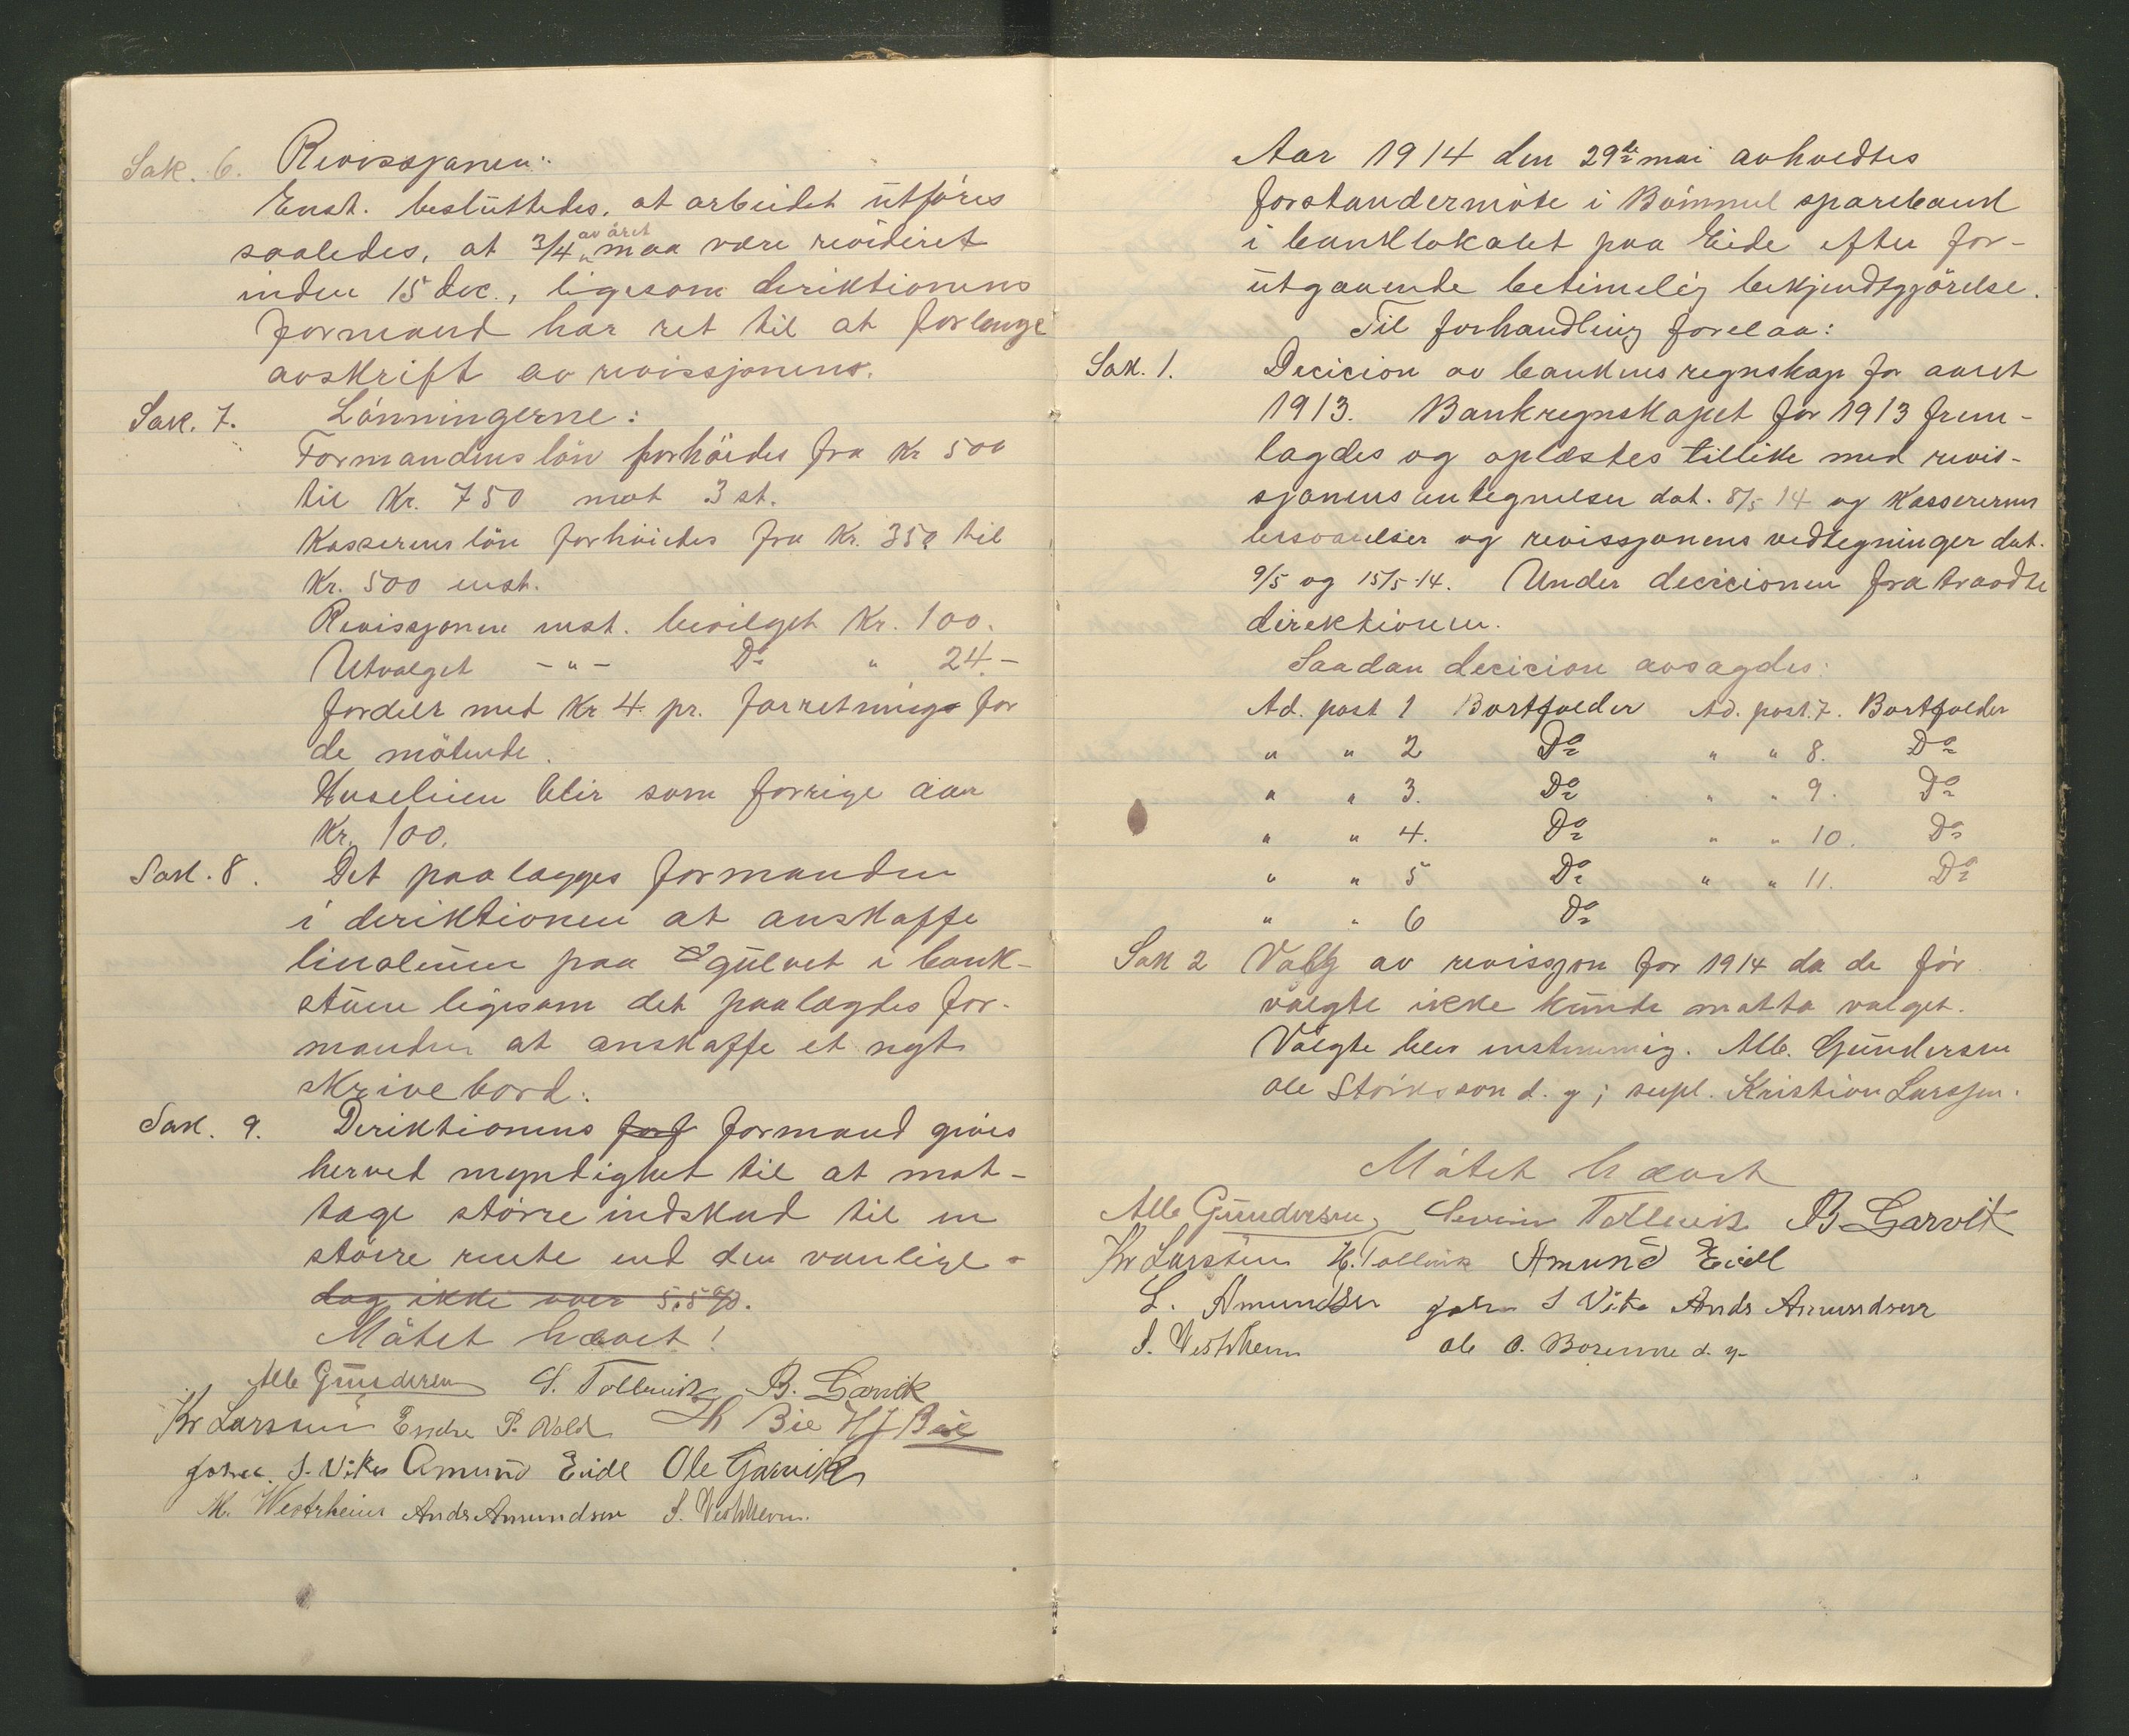 Sak. 6. Revissjonen:
Enst. besluttedes, at arbeidet utføres
saaledes, at 3/4 av året maa være revideret
inden 15 dec., ligesom deriktionens
formand har ret til at forlange
avskrift av revissjonens.
Sak. 7. Lönningerne:
Formandens lön forhöides fra Kr 500
til Kr. 750 mot 3 st.
Kasserens lön forhöides fra Kr. 350 til
Kr. 500 enst.
Revissjonen enst. bevilget Kr. 100.
Utvalget - " - Do " 24.-
fordelt med Kr 4. pr. forretnings for
de mötende.
Husleien blir som forrige aar
Kr. 100.
Sak. 8. Det paalægges formanden
i deriktionen at anskaffe
linoleum paa gulvet i bank-
stuen ligesom det paalægdes for-
manden at anskaffe et nyt
skrivebord.
Sak. 9. Deriktionens forf formand gives
herved myndighet til at mot-
tage större indskud til en
större rente end den vanlige -
dog ikke over 5.5 %.
Mötet hævet!
Alb Gundersen S. Tollevik B. Larvik
Kr Larssen Endre P. Vold Th Bie H J Bie
Johan. S. Vika Amund Eide Ole Garvik
M. Westrheim Ands Amundsen S. Vestrheim.
Aar 1914 den 29de mai avholdtes
forstandermöte i Bömmel sparebank
i banklokalet paa Eide efter for-
utgaaende betimelig bekjendtgjörelse.
Til forhandling forelaa:
Sak. 1. Decicion av bankens regnskap for aaret
1913. Bankregnskapet for 1913 frem-
lagdes og oplæstes tillike med revis-
sjonens antegnelser dat. 8/5 14 og Kassererens
besvarelser og revissjonens vedtegninger dat.
9/5 og 15/5-14. Under decicionen fratraadte
direktionen.
Saadan decicion avsagdes:
Ad. post 1 Bortfalder Ad. post. 7. Bortfalder
" " 2 Do " " 8. Do
" " 3. Do " " 9. Do
" " 4. Do " " 10. Do
" " 5 Do " " 11. Do
" " 6 Do
Sak 2 Valg av revissjon for 1914 da de för
valgte ikke kunde motta valget.
Valgte blev enstemmig. Alb. Gundersen
Ole d. y; supl. Kristian Larssen.
Mötet hævet
Alb Gundersen Severin Tollevik B Larvik
Kr Larssen H. Tollevik Amund Eide
L. Amundsen Johan S Vika Ands Amundsen
S. Vestrheim Ole O. d. y.